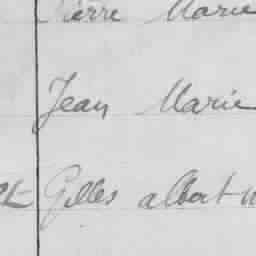 Pierre Marie
Jean Marie
Gilles albert